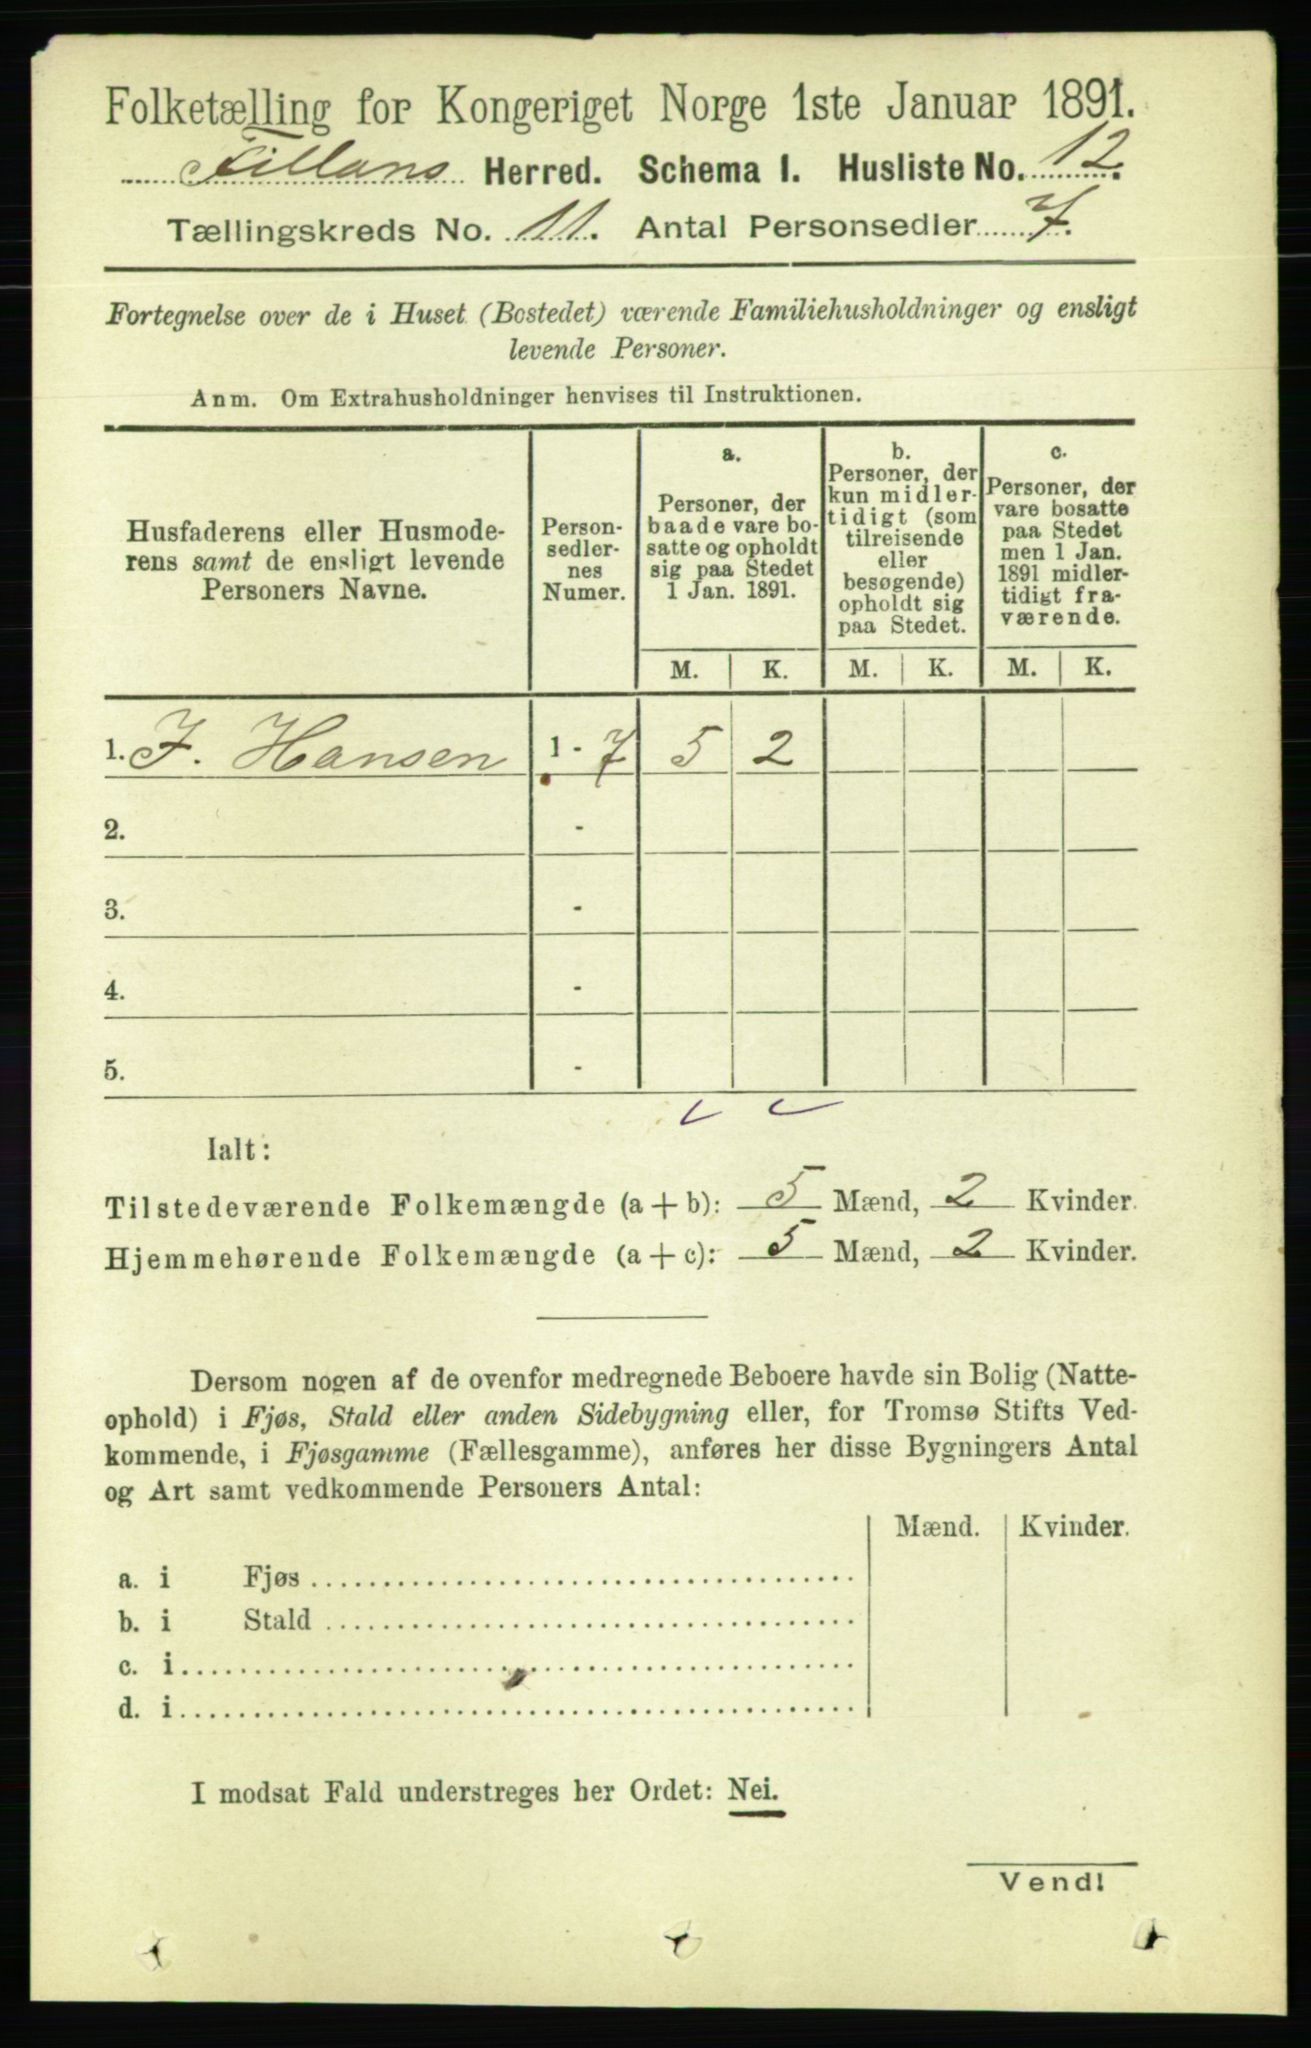 Folketælling for Kongeriget Norge 1ste Januar 1891.
Fillans Herred. Schema I. Husliste No. 12.
Tællingskreds No. 11. Antal Personsedler 7.
Fortegnelse over de i Huset (Bostedet) værende Familiehusholdninger og ensligt
levende Personer.
Anm. Om Extrahusholdninger henvises til Instruktionen.
Husfaderens eller Husmode-
rens samt de ensligt levende
Personers Navne.
Person-
sedler-
nes
Numer.
a.
Personer, der
baade vare bo-
satte og opholdt
sig paa Stedet
1 Jan. 1891.
b.
Personer, der
kun midler-
tidigt (som
tilreisende
eller
besøgende)
opholdt sig
paa Stedet.
c.
Personer, der
vare bosatte
paa Stedet
men 1 Jan.
1891 midler-
tidigt fra-
værende.
M. K. M. K. M. K.
1. F. Hansen 1 - 7 5 2
2. -
3. -
4. -
5. -
Ialt:
Tilstedeværende Folkemængde (a + b): 5 Mænd, 2 Kvinder.
Hjemmehørende Folkemængde (a + c): 5 Mænd, 2 Kvinder.
Dersom nogen af de ovenfor medregnede Beboere havde sin Bolig (Natte-
ophold) i Fjøs, Stald eller anden Sidebygning eller, for Tromsø Stifts Ved-
kommende, i Fjøsgamme (Fællesgamme), anføres her disse Bygningers Antal
og Art samt vedkommende Personers Antal:
Mænd. Kvinder.
a. i Fjøs
b. i Stald
c. i
d. i
I modsat Fald understreges her Ordet: Nei.
Vend!